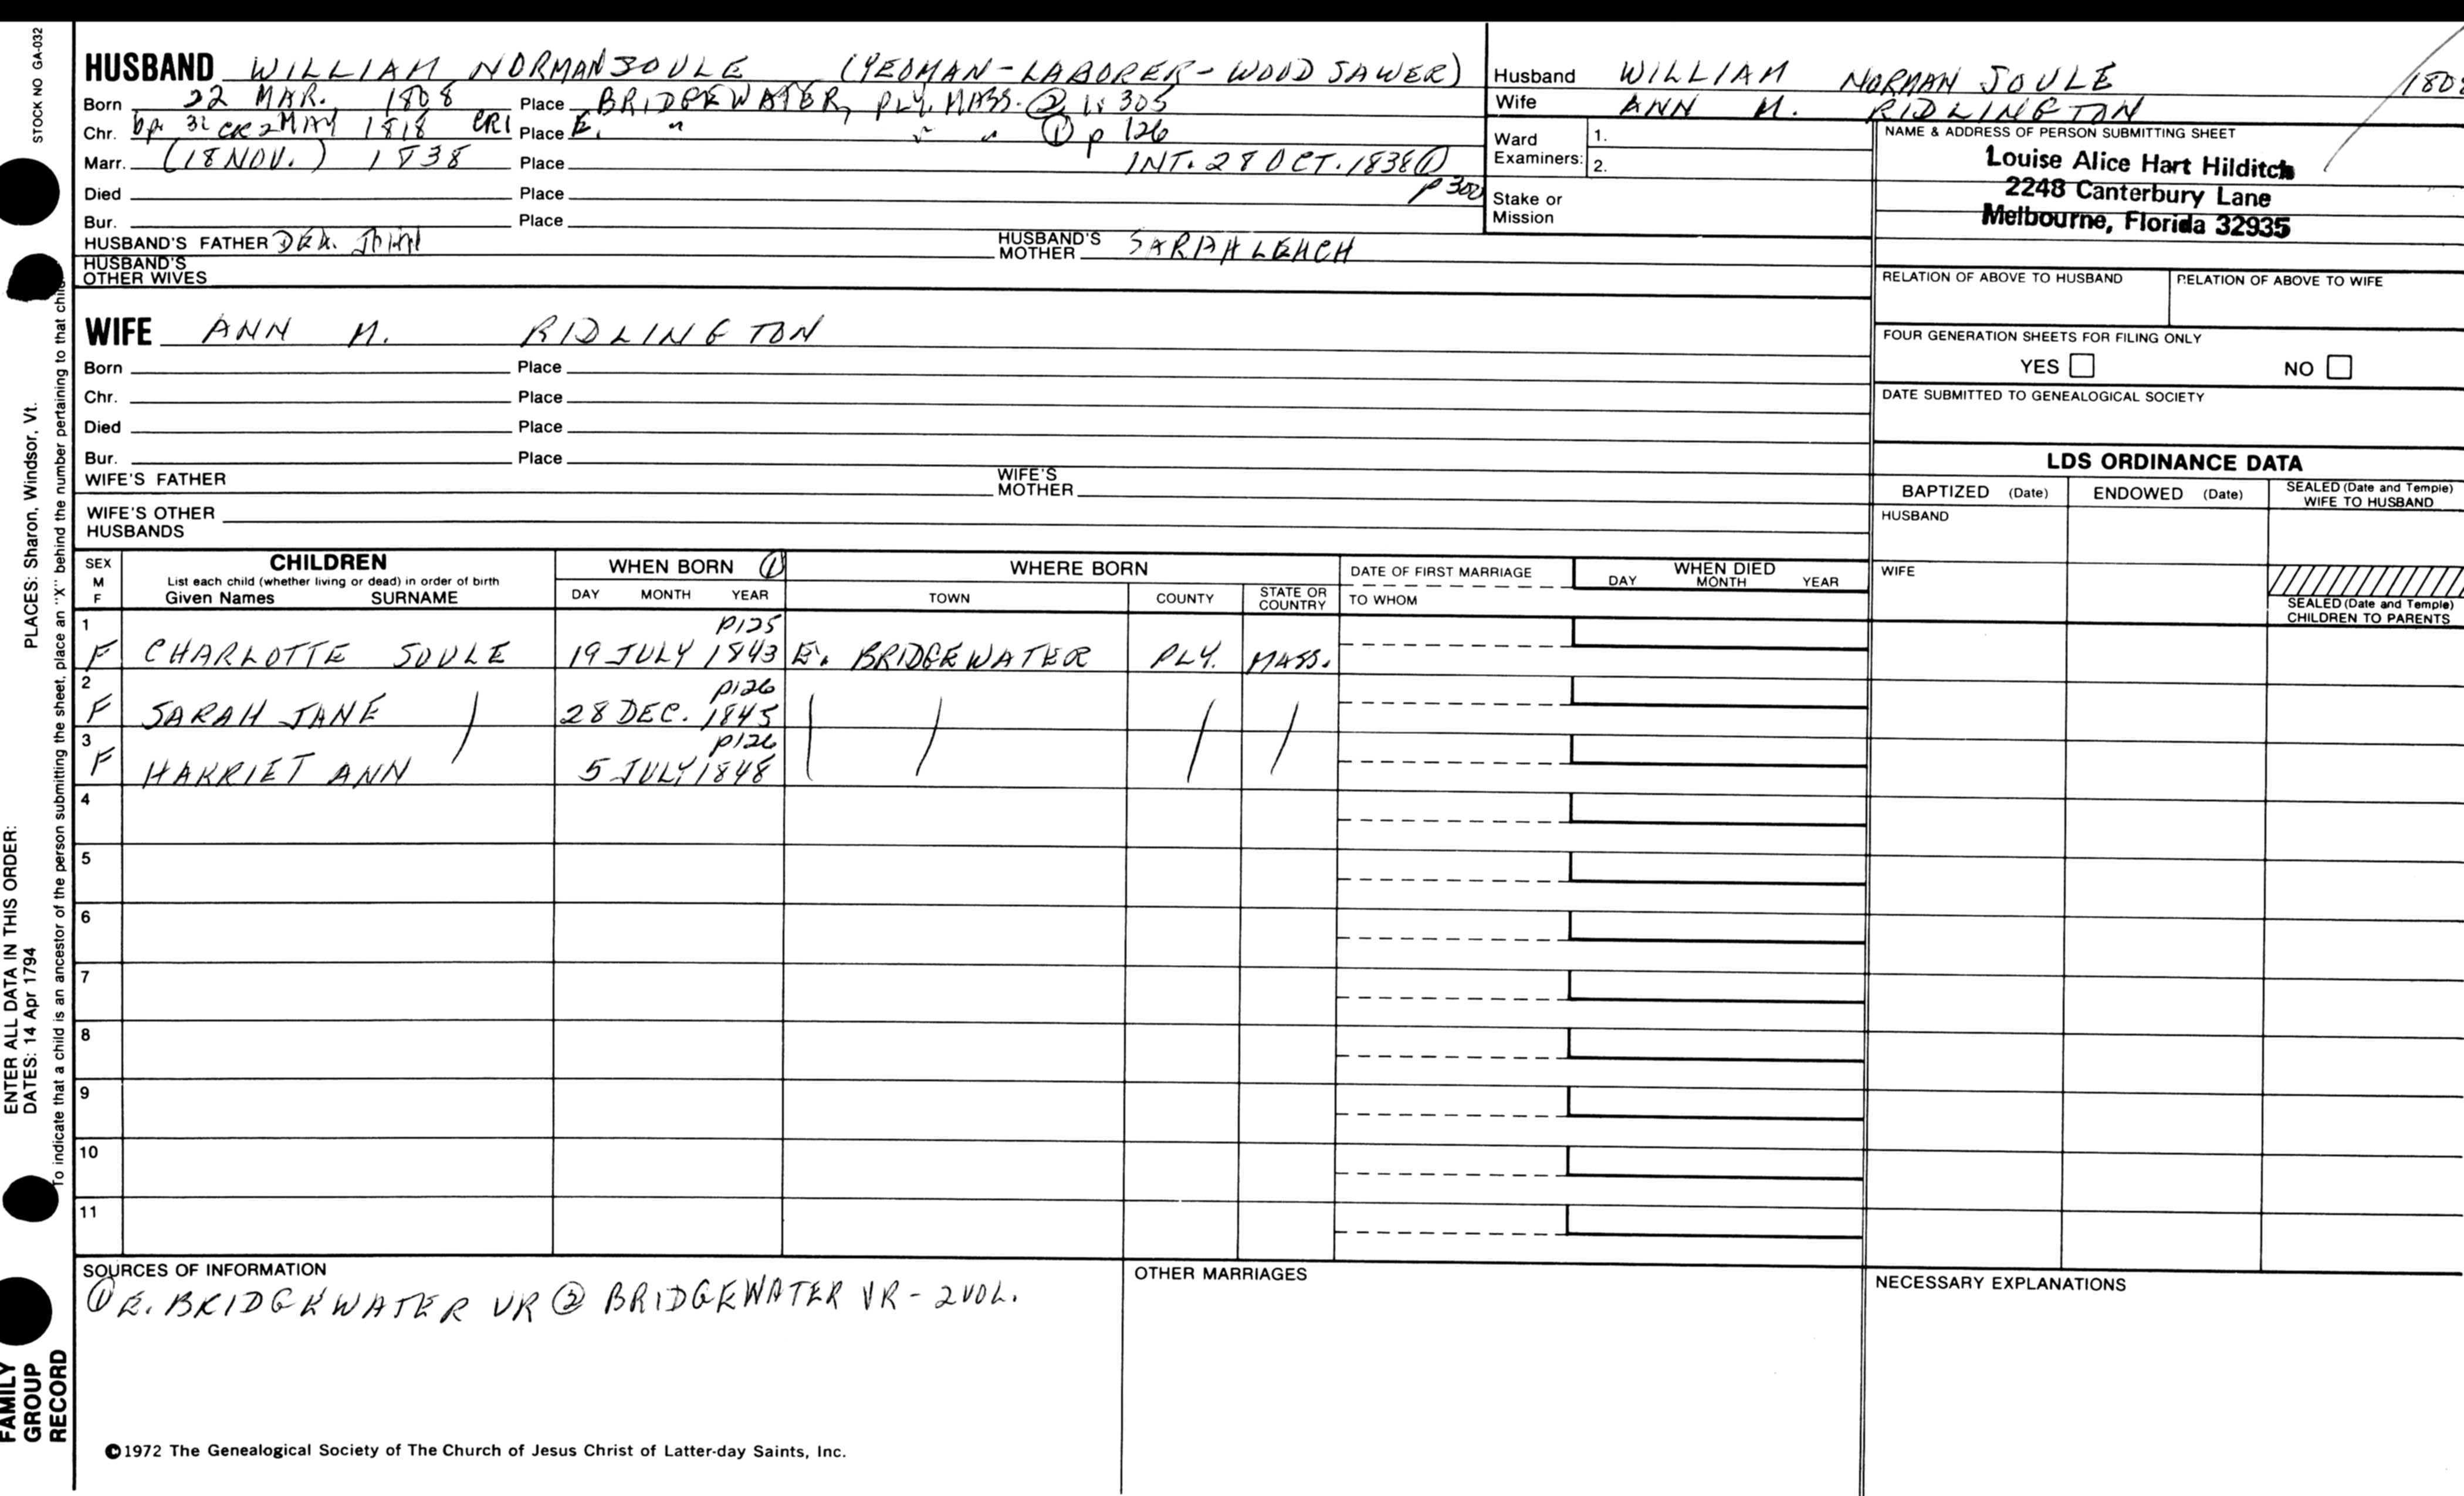 STOCK NO GA-032
HUSBAND WILLIAM NORMAN SOULE (YEOMAN-LABORER-WOOD SAWER)
Born 22 MAR. 1808 Place BRIDGEWATER, PLY. MASS. ② 305
Chr. bp. MAY 1818 CR1 Place E. " " " ① p 126
Marr. (18 NOV.) 1838 Place INT. 28 OCT. 1838 ①
p 300
Died Place
Bur. Place
HUSBAND'S FATHER DEA. JOHN HUSBAND'S MOTHER SARAH LEACH
HUSBAND'S
OTHER WIVES
Husband WILLIAM NORMAN SOULE 1808
Wife ANN M. RIDLINGTON
Ward
Examiners:
1.
2.
Stake or
Mission
NAME & ADDRESS OF PERSON SUBMITTING SHEET
Louise Alice Hart Hilditch
2248 Canterbury Lane
Melbourne, Florida 32935
RELATION OF ABOVE TO HUSBAND RELATION OF ABOVE TO WIFE
FOUR GENERATION SHEETS FOR FILING ONLY
YES NO
DATE SUBMITTED TO GENEALOGICAL SOCIETY
WIFE ANN M. RIDLINGTON
Born Place
Chr. Place
Died Place
Bur. Place
WIFE'S FATHER WIFE'S MOTHER
WIFE'S OTHER
HUSBANDS
LDS ORDINANCE DATA
BAPTIZED (Date) ENDOWED (Date) SEALED (Date and Temple)
WIFE TO HUSBAND
HUSBAND
WIFE
SEALED (Date and Temple)
CHILDREN TO PARENTS
SEX
M
F
CHILDREN
List each child (whether living or dead) in order of birth
Given Names SURNAME
WHEN BORN ①
DAY MONTH YEAR
WHERE BORN
TOWN COUNTY STATE OR COUNTRY
DATE OF FIRST MARRIAGE
TO WHOM
WHEN DIED
DAY MONTH YEAR
1 p125
F CHARLOTTE SOULE 19 JULY 1843 E. BRIDGEWATER PLY. MASS.
2 p126
F SARAH JANE 28 DEC. 1845
3 p126
F HARRIET ANN 5 JULY 1848
4
5
6
7
8
9
10
11
SOURCES OF INFORMATION
① E. BRIDGEWATER VR ② BRIDGEWATER VR - 2 VOL.
OTHER MARRIAGES
NECESSARY EXPLANATIONS
©1972 The Genealogical Society of The Church of Jesus Christ of Latter-day Saints, Inc.
ENTER ALL DATA IN THIS ORDER:
DATES: 14 Apr 1794
PLACES: Sharon, Windsor, Vt.
To indicate that a child is an ancestor of the person submitting the sheet, place an "X" behind the number pertaining to that child.
FAMILY
GROUP
RECORD